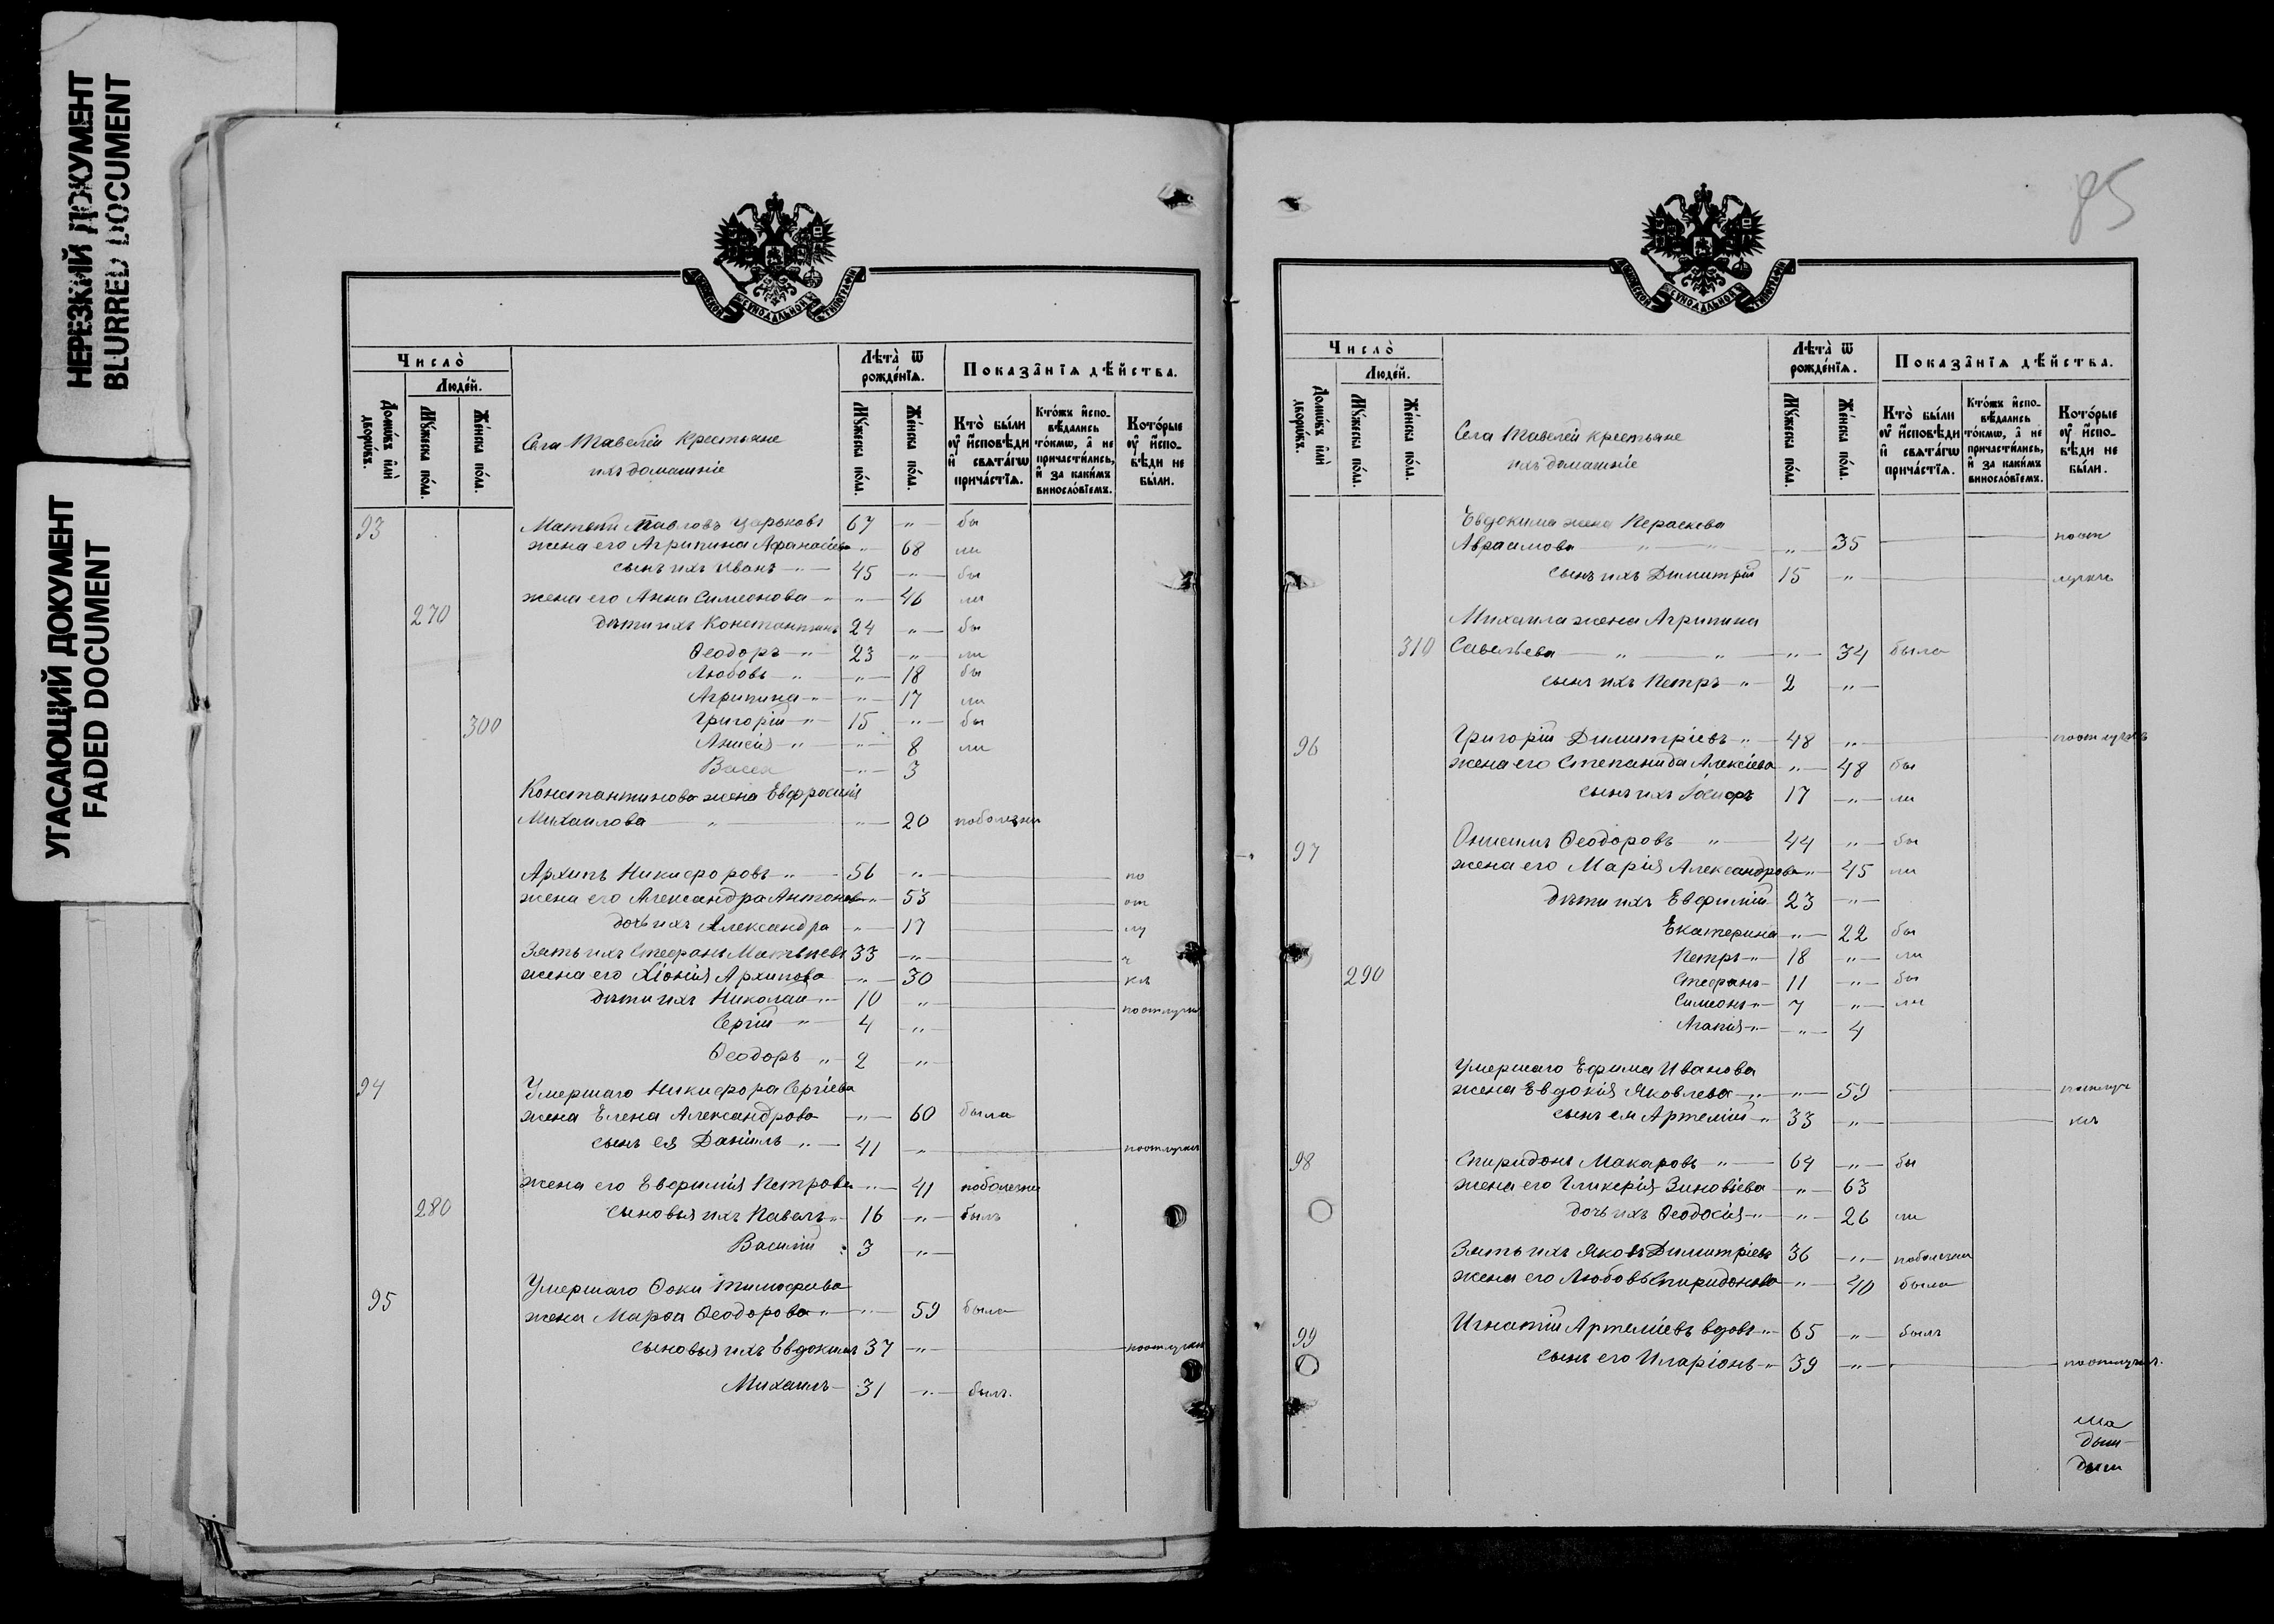 НЕРЕЗКИЙ ДОКУМЕНТ
BLURRED DOCUMENT
УГАСАЮЩИЙ ДОКУМЕНТ
FADED DOCUMENT
Число̀
Люде́й.
Лѣта̀ ѿ рожде́нїѧ.
Показа̑нїѧ дѣ́йства.
Домѡ́въ и҆лѝ дворѡ́въ.
Мꙋ́жеска по́ла.
Же́нска по́ла.
Села Тавелей крестьяне
ихъ домашніе
Мꙋ́жеска по́ла.
Же́нска по́ла.
Кто̀ бы́ли ᲂу҆̀ и҆́сповѣди и҆ свѧта́гѡ прича́стїѧ.
Кто́жъ и҆спо-вѣ́дались то́кмѡ, а҆ не причасти́лись, и҆ за каки́мъ виносло́вїемъ.
Кото́рые ᲂу҆̀ и҆́спо-вѣди не бы́ли.
93 Матвей Павловъ Царьковъ 67 " бы
жена его Агрипина Афанасіева " 68 ли
сынъ ихъ Иванъ " 45 " бы
жена его Анна Симеонова " " 46 ли
270 дѣти ихъ Константинъ 24 " бы
Ѳеодоръ " 23 " ли
Любовь " " 18 бы
Агрипина " " 17 ли
300 Григорій " 15 " бы
Анисія " " 8 ли
Васса " 3
Константинова жена Евфросинія
Михаилова " " 20 поболезни
Архипъ Никифоровъ " 56 " по
жена его Александра Антонова " 53 от
дочь ихъ Александра " 17 лу
Зять ихъ Стефанъ Матвѣевъ 33 " ч
жена его Хіонія Архипова " 30 къ
дѣти ихъ Николай " 10 " поотлучк
Сергій " 4 "
Ѳеодоръ " 2 "
94 Умершаго Никифора Сергіева
жена Елена Александрова " 60 была
сынъ ея Даніилъ " 41 " поотлучкѣ
жена его Евфимія Петрова " 41 поболезни
280 сыновья ихъ Павелъ " 16 " былъ
Василій 3 "
95 Умершаго Фоки Тимофеева
жена Марѳа Ѳеодорова " " 59 была
сыновья ихъ Евдокимъ 37 " поотлучкѣ
Михаилъ 31 " былъ.
85
Число̀
Люде́й.
Лѣта̀ ѿ рожде́нїѧ.
Показа̑нїѧ дѣ́йства.
Домѡ́въ и҆лѝ дворѡ́въ.
Мꙋ́жеска по́ла.
Же́нска по́ла.
Села Тавелей крестьяне
ихъ домашніе
Мꙋ́жеска по́ла.
Же́нска по́ла.
Кто̀ бы́ли ᲂу҆̀ и҆́сповѣди и҆ свѧта́гѡ прича́стїѧ.
Кто́жъ и҆спо-вѣ́дались то́кмѡ, а҆ не причасти́лись, и҆ за каки́мъ виносло́вїемъ.
Кото́рые ᲂу҆̀ и҆́спо-вѣди не бы́ли.
Евдокима жена Параскева
Авраамова " " " 35 поот
сынъ ихъ Димитрій 15 " лучкѣ
Михаила жена Агрипина
310 Савельева " " " 34 была
сынъ ихъ Петръ " 2 "
96 Григорій Димитріевъ " 48 " поотлучкѣ
жена его Степанида Алексіева " 48 бы
сынъ ихъ Іосифъ 17 " ли
97 Онисимъ Ѳеодоровъ " 44 " бы
жена его Марія Александрова " 45 ли
дѣти ихъ Евфимій 23 "
Екатерина " 22 бы
Петръ " 18 " ли
290 Стефанъ 11 " бы
Симеонъ " 7 " ли
Агапія " " 4
Умершаго Ефима Иванова
жена Евдокія Яковлева " " 59 поотлуч
сынъ ея Артемій " 33 " кѣ
98 Спиридонъ Макаровъ " 64 " бы
жена его Гликерія Зиновіева " 63
дочь ихъ Ѳеодосія " " 26 ли
Зять ихъ Яковъ Димитріевъ 36 " поболезни
жена его Любовь Спиридонова " 40 была
99 Игнатій Артеміевъ вдовъ " 65 " былъ
сынъ его Иларіонъ " 39 " поотлучкѣ.